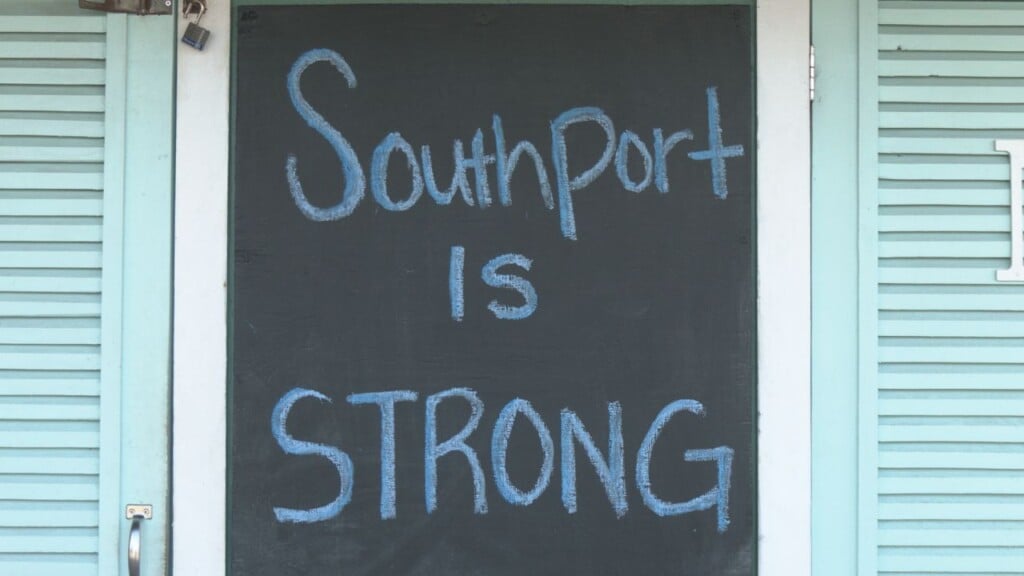 Southport
is
STRONG